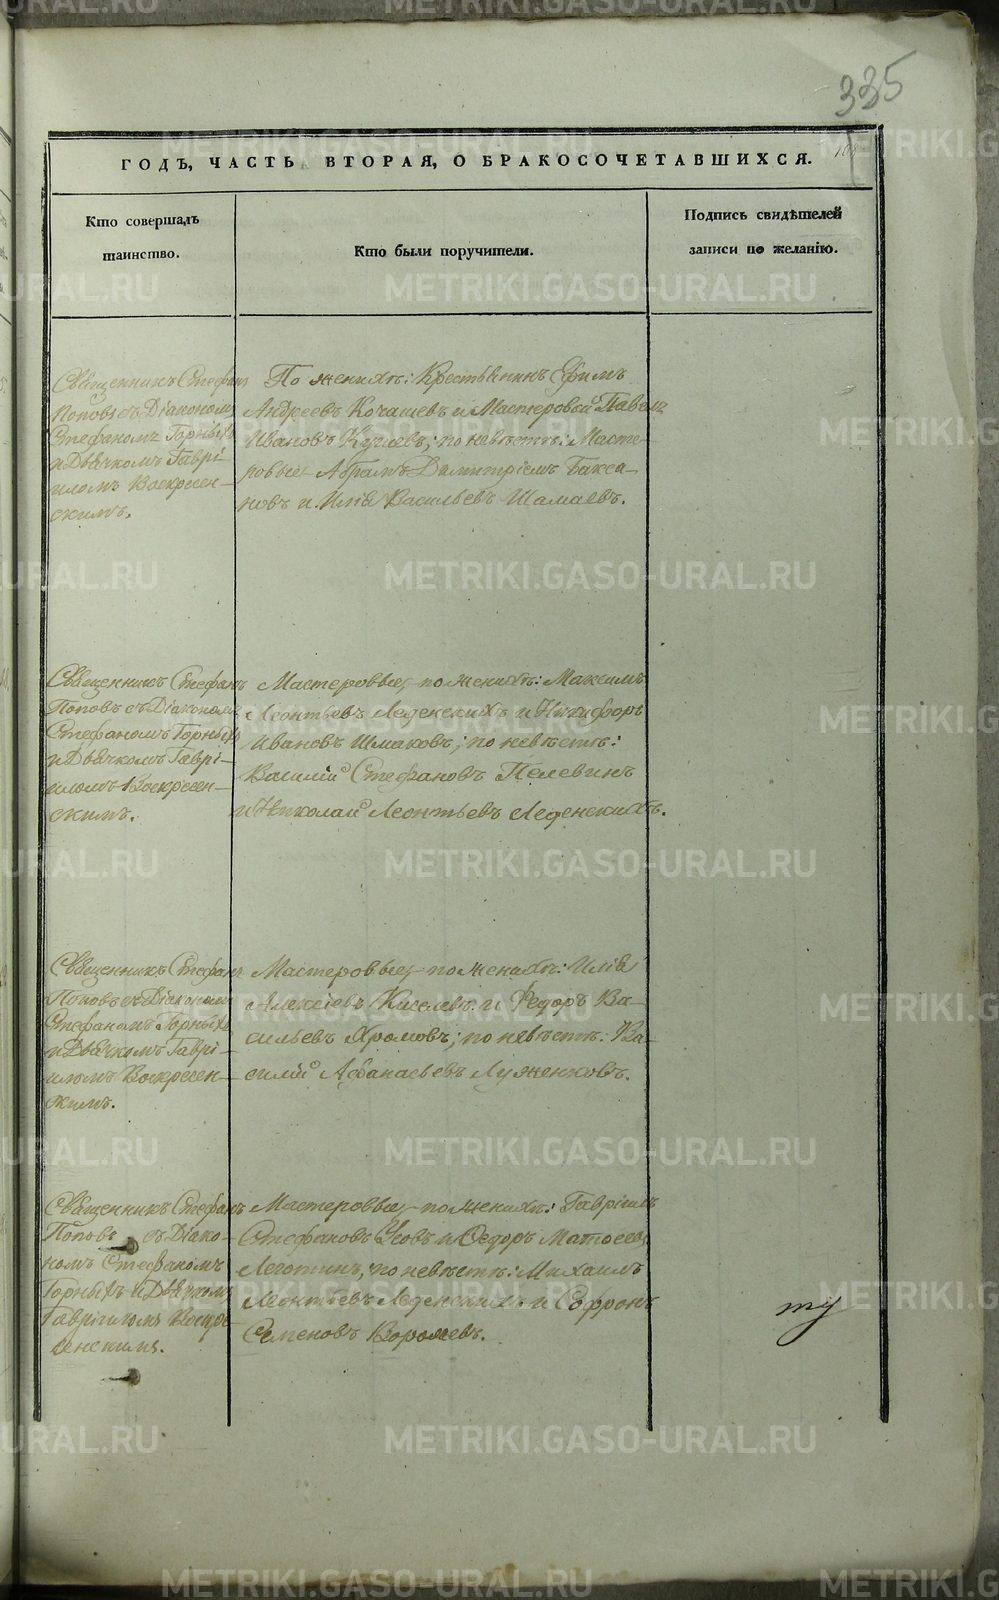 335
ГОДЪ, ЧАСТЬ ВТОРАЯ, О БРАКОСОЧЕТАВШИХСЯ.
Кто совершалъ
таинство.
Кто были поручители.
Подпись свидѣтелей
записи по желанію.
Священникъ Стефанъ
Поповъ съ Діакономъ
Стефаномъ Горныхъ
и Дьячкомъ Гаврі-
иломъ Воскресен-
скимъ.
По женихѣ: Крестьянинъ Ефимъ
Андреевъ Кочашевъ и Мастеровой Павелъ
Ивановъ; по невѣстѣ: Масте-
ровые Абрамъ Димитріевъ Бакса-
новъ и Илія Васильевъ Шамаевъ.
Священникъ Стефанъ
Поповъ съ Діакономъ
Стефаномъ Горныхъ
и Дьячкомъ Гаврі-
иломъ Воскресен-
скимъ.
Мастеровые, по женихѣ: Максимъ
Леонтьевъ Леденскихъ и Никифоръ
Ивановъ Шмаковъ; по невѣстѣ:
Василій Стефановъ Пелевинъ
и Николай Леонтьевъ Леденскихъ.
Священникъ Стефанъ
Поповъ съ Діакономъ
Стефаномъ Горныхъ
и Дьячкомъ Гаврі-
иломъ Воскресен-
скимъ.
Мастеровые, по женихѣ: Илія
Алексіевъ Киселевъ и Федоръ Ва-
сильевъ Хромовъ; по невѣстѣ: Ва-
силій Афанасьевъ Луженковъ.
Священникъ Стефанъ
Поповъ съ Діако-
номъ Стефаномъ
Горныхъ и Дьячкомъ
Гавріиломъ Воскре-
сенскимъ.
Мастеровые, по женихѣ: Гавріилъ
Стефановъ Усовъ и Ѳедоръ Матѳеевъ
Леготинъ; по невѣстѣ: Михаилъ
Леонтьевъ Леденскихъ и Софронъ
Семеновъ.
METRIKI.GASO-URAL.RU